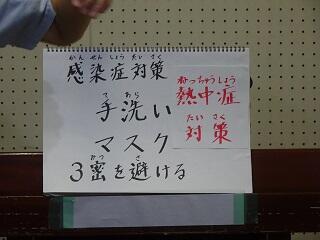 かんせんしょうたいさく
感染症対策
てあら
手洗い
マスク
みつ さ
3密を避ける
ねっちゅうしょう
熱中症
たいさく
対策